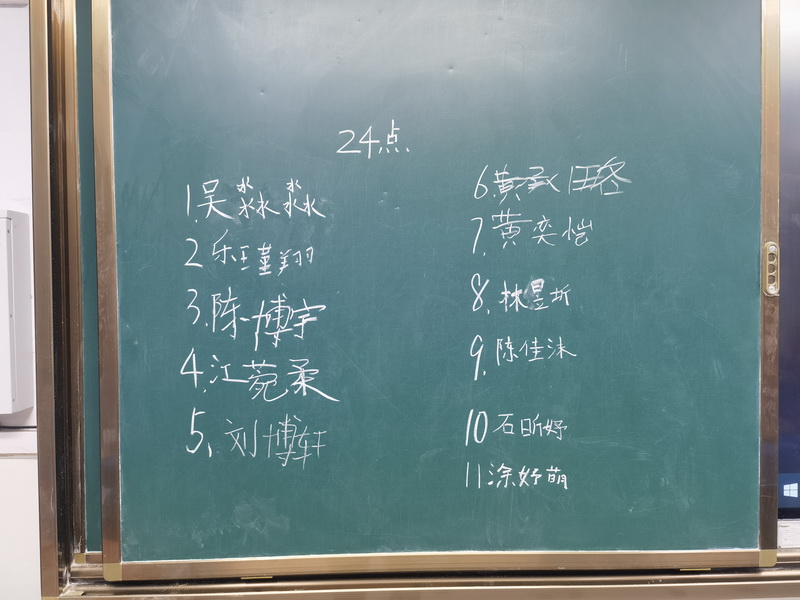 24点
1.吴淼淼
2 乐瑾翔
3.陈博宇
4.江菀柔
5.刘博轩
6.黄承
7.黄奕恺
8.林昱圻
9.陈佳沐
10石昕妤
11涂妤萌